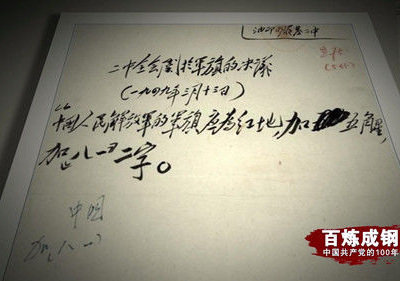 二中全会関於军旗的决議
(一九四九年三月十三日)
中國人民解放军的军旗应為红地,加五角星,
加“八一”二字。
中国
加(八一)
百炼成钢
中国共产党的100年